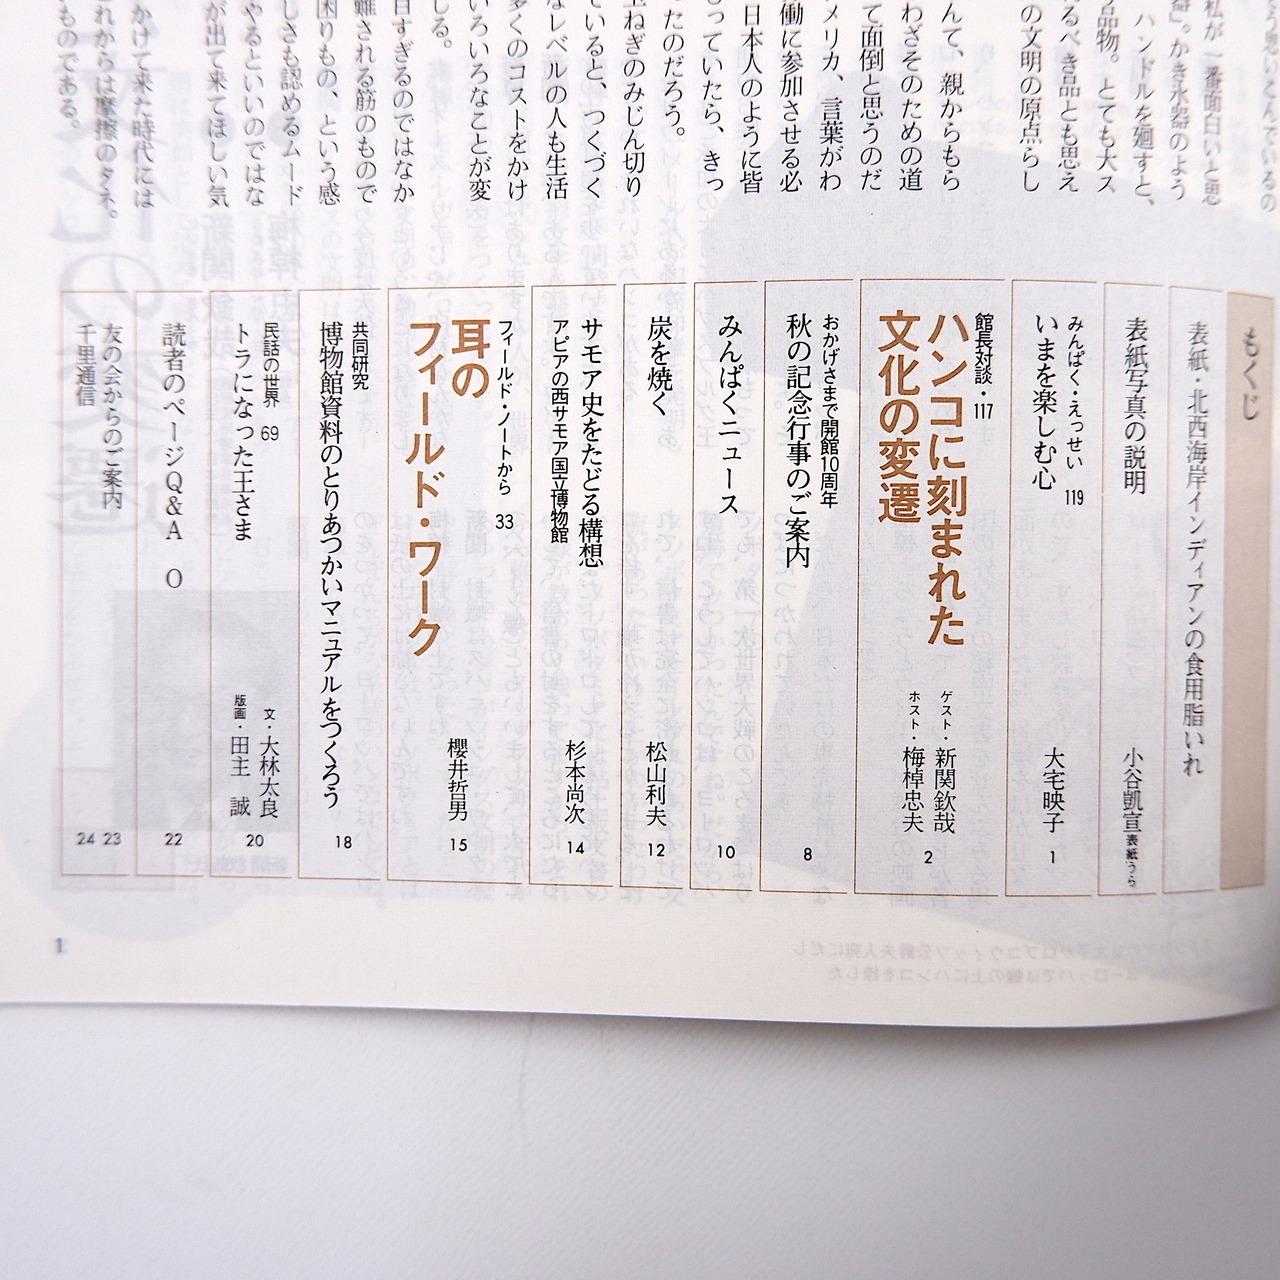 私が一番面白いと思
器』。かき氷器のよう
ハンドルを廻すと、
品物。とても大ス
るべき品とも思え
の文明の原点らし
んて、親からもら
わざそのための道
て面倒と思うのだ
メリカ、言葉がわ
働に参加させる必
日本人のように皆
っていたら、きっ
たのだろう。
ねぎのみじん切り
ていると、つくづく
なレベルの人も生活
多くのコストをかけ
いろいろなことが変
る。
目すぎるのではなか
難される筋のもので
困りもの、という感
しさも認めるムード
やるといいのではな
が出て来てほしい気
かけて来た時代には
れからは摩擦のタネ。
ものである。
もくじ
表紙・北西海岸インディアンの食用脂いれ
表紙写真の説明 小谷凱宣 表紙うら
みんぱく・えっせい 119
いまを楽しむ心 大宅映子 1
館長対談・117
ハンコに刻まれた
文化の変遷
ゲスト・新関欽哉
ホスト・梅棹忠夫 2
おかげさまで開館10周年
秋の記念行事のご案内 8
みんぱくニュース 10
炭を焼く 松山利夫 12
サモア史をたどる構想
アピアの西サモア国立博物館 杉本尚次 14
フィールド・ノートから 33
耳の
フィールド・ワーク 櫻井哲男 15
共同研究
博物館資料のとりあつかいマニュアルをつくろう 18
民話の世界 69
トラになった王さま
文・大林太良
版画・田主 誠 20
読者のページQ&A O 22
友の会からのご案内 23
千里通信 24
1